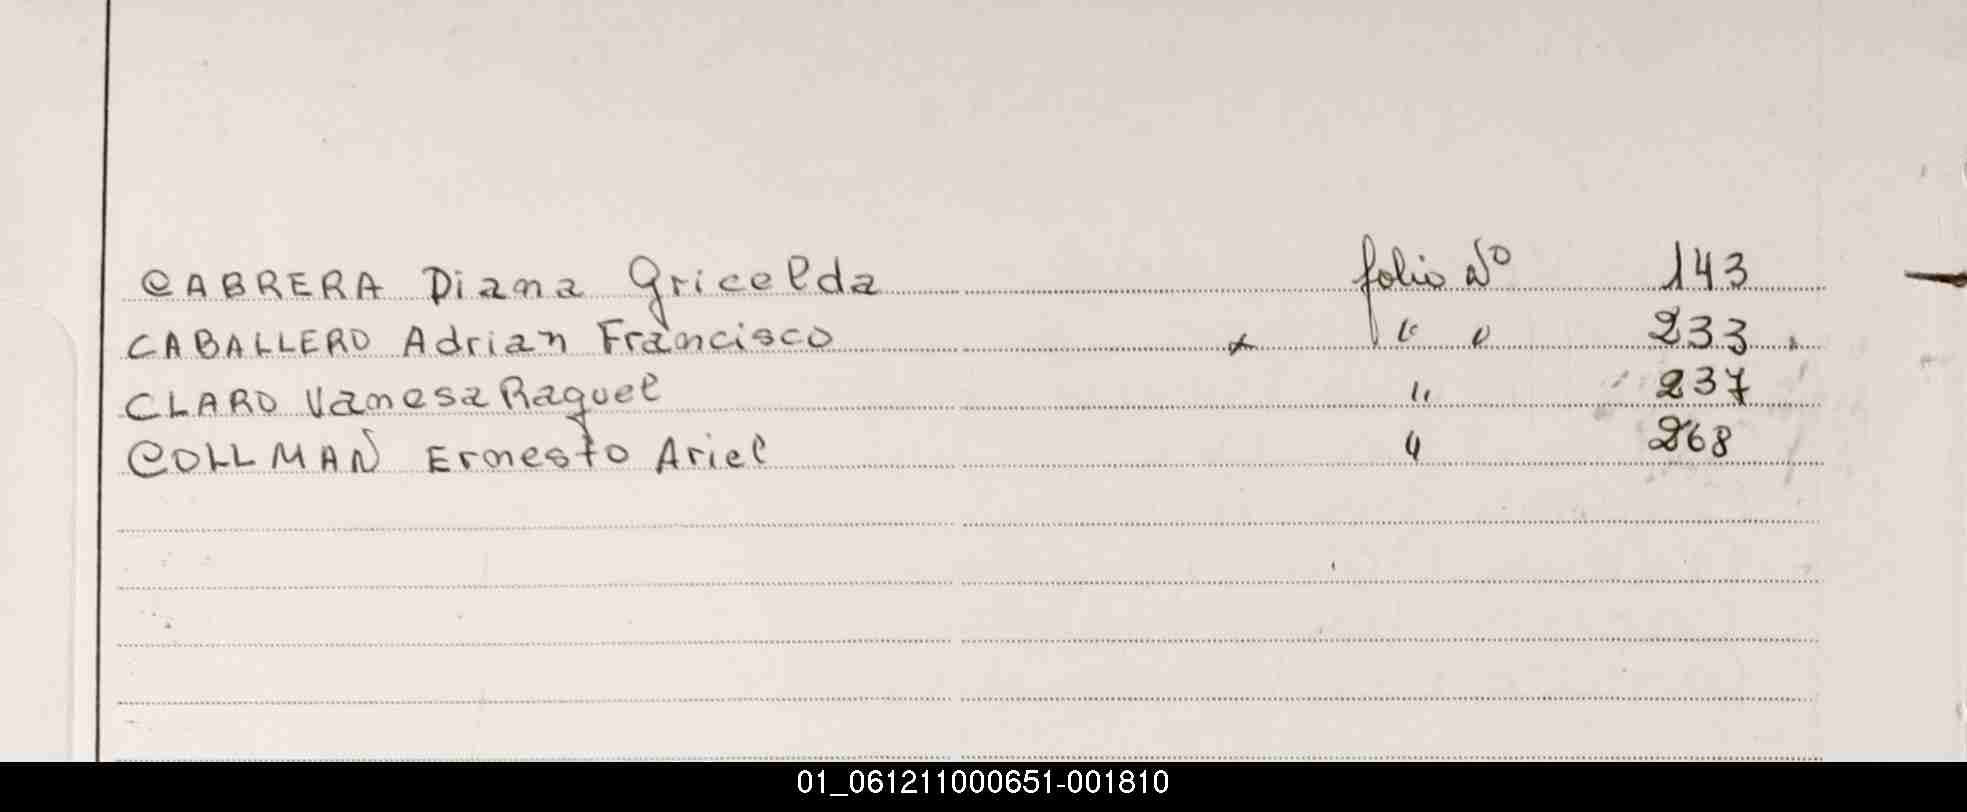 CABRERA Diana Gricelda folio Nº 143
CABALLERO Adrian Francisco x " " 233
CLARO Vanesa Raquel " 237
COLLMAN Ernesto Ariel " 268
01_061211000651-001810